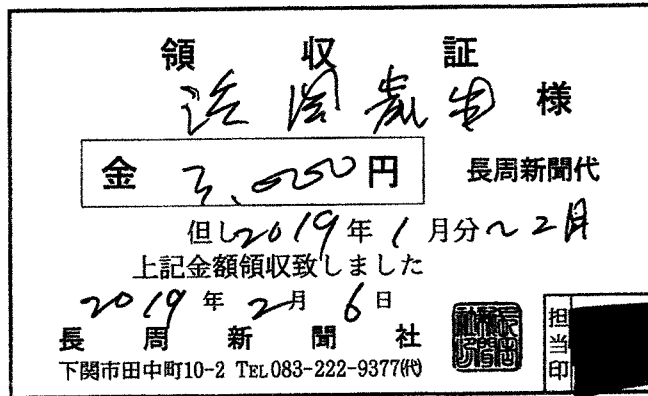 領収証
浜岡嵩生 様
金 3,000円 長周新聞代
但し2019年1月分~2月
上記金額領収致しました
2019年2月6日
長周新聞社
下関市田中町10-2 TEL083-222-9377㈹
担当印